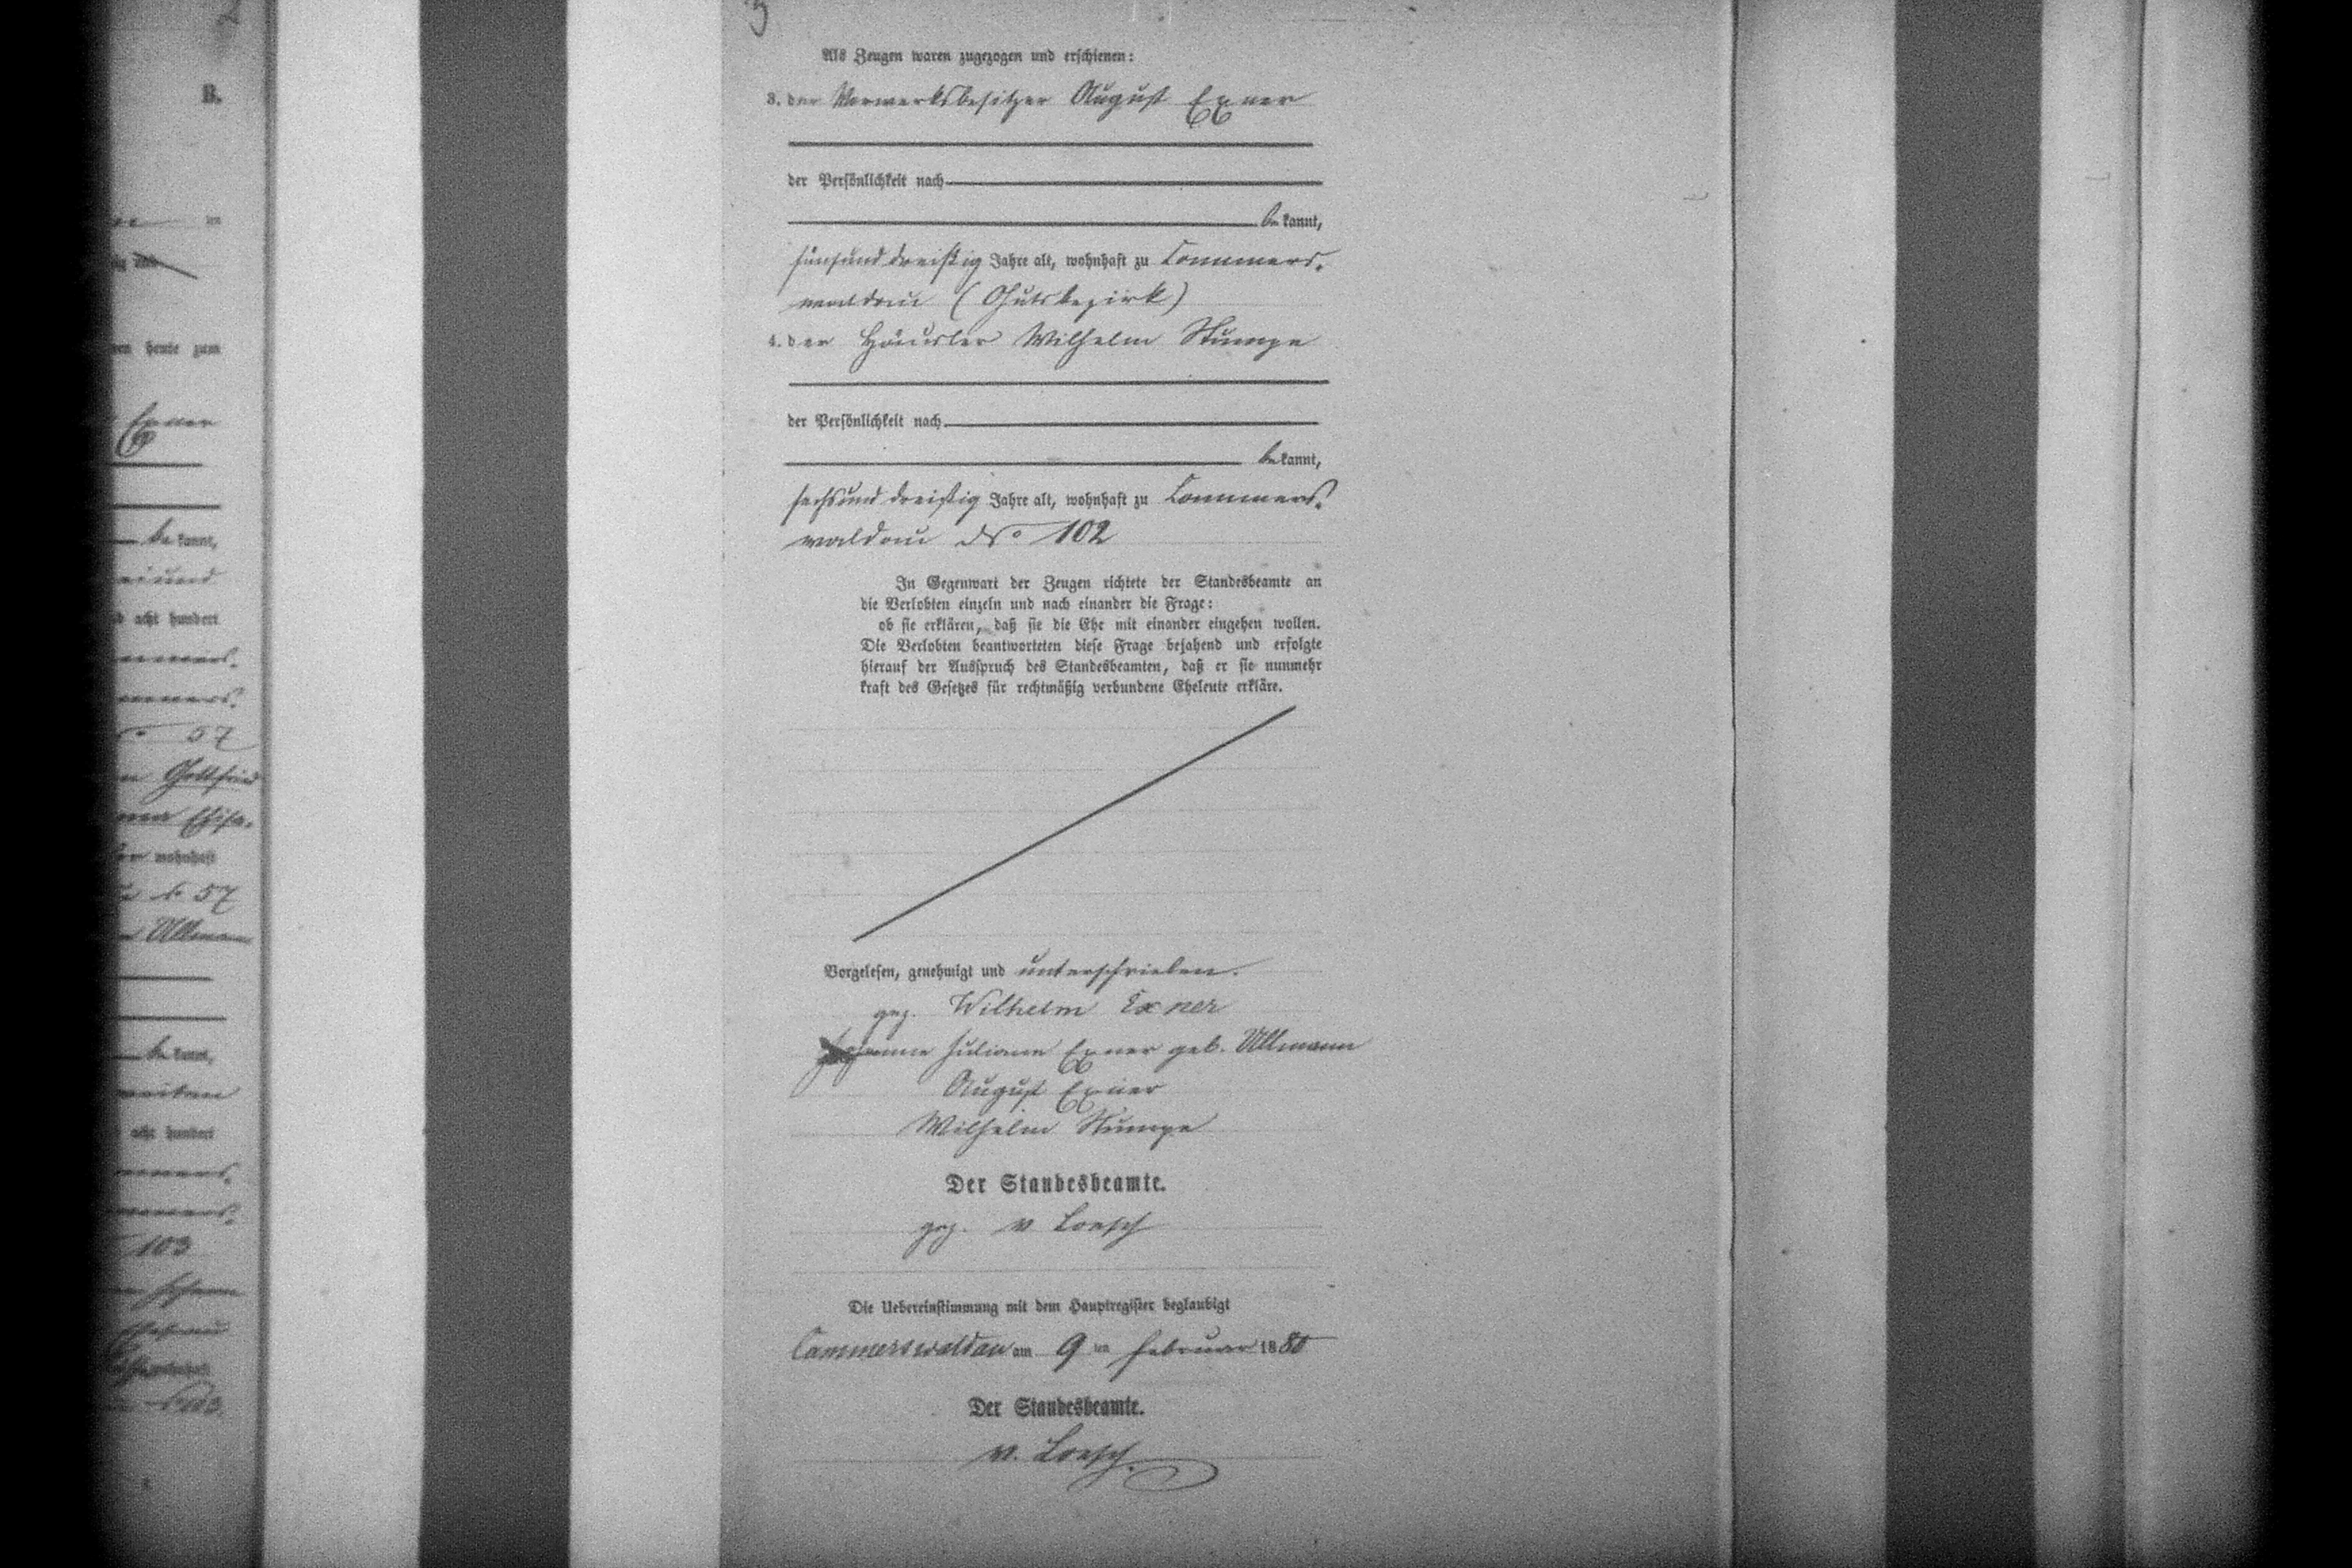 2
B.
en heute zum
Exner
be kannt,
acht hundert
57
Gottfried
wohnhaft
57
Ullmann
be kannt,
acht hundert
103
3
Als Zeugen waren zugezogen und erschienen:
3. der Vorwerksbesitzer August Exner
der Persönlichkeit nach
be kannt,
fünfunddreißig Jahre alt, wohnhaft zu Cammers-
waldau (Gutsbezirk)
4. der Häusler Wilhelm Stumpe
der Persönlichkeit nach
be kannt,
sechsunddreißig Jahre alt, wohnhaft zu Cammers-
waldau No 102
In Gegenwart der Zeugen richtete der Standesbeamte an
die Verlobten einzeln und nach einander die Frage:
ob sie erklären, daß sie die Ehe mit einander eingehen wollen.
Die Verlobten beantworteten diese Frage bejahend und erfolgte
hierauf der Ausspruch des Standesbeamten, daß er sie nunmehr
kraft des Gesetzes für rechtmäßig verbundene Eheleute erkläre.
Vorgelesen, genehmigt und unterschrieben.
gez. Wilhelm Exner
Johanne Juliane Exner geb. Ullmann
August Exner
Wilhelm Stumpe
Der Standesbeamte.
gez. v Loesch
Die Uebereinstimmung mit dem Hauptregister beglaubigt
Cammerswaldau am 9 ten Februar 1880
Der Standesbeamte.
v. Loesch.